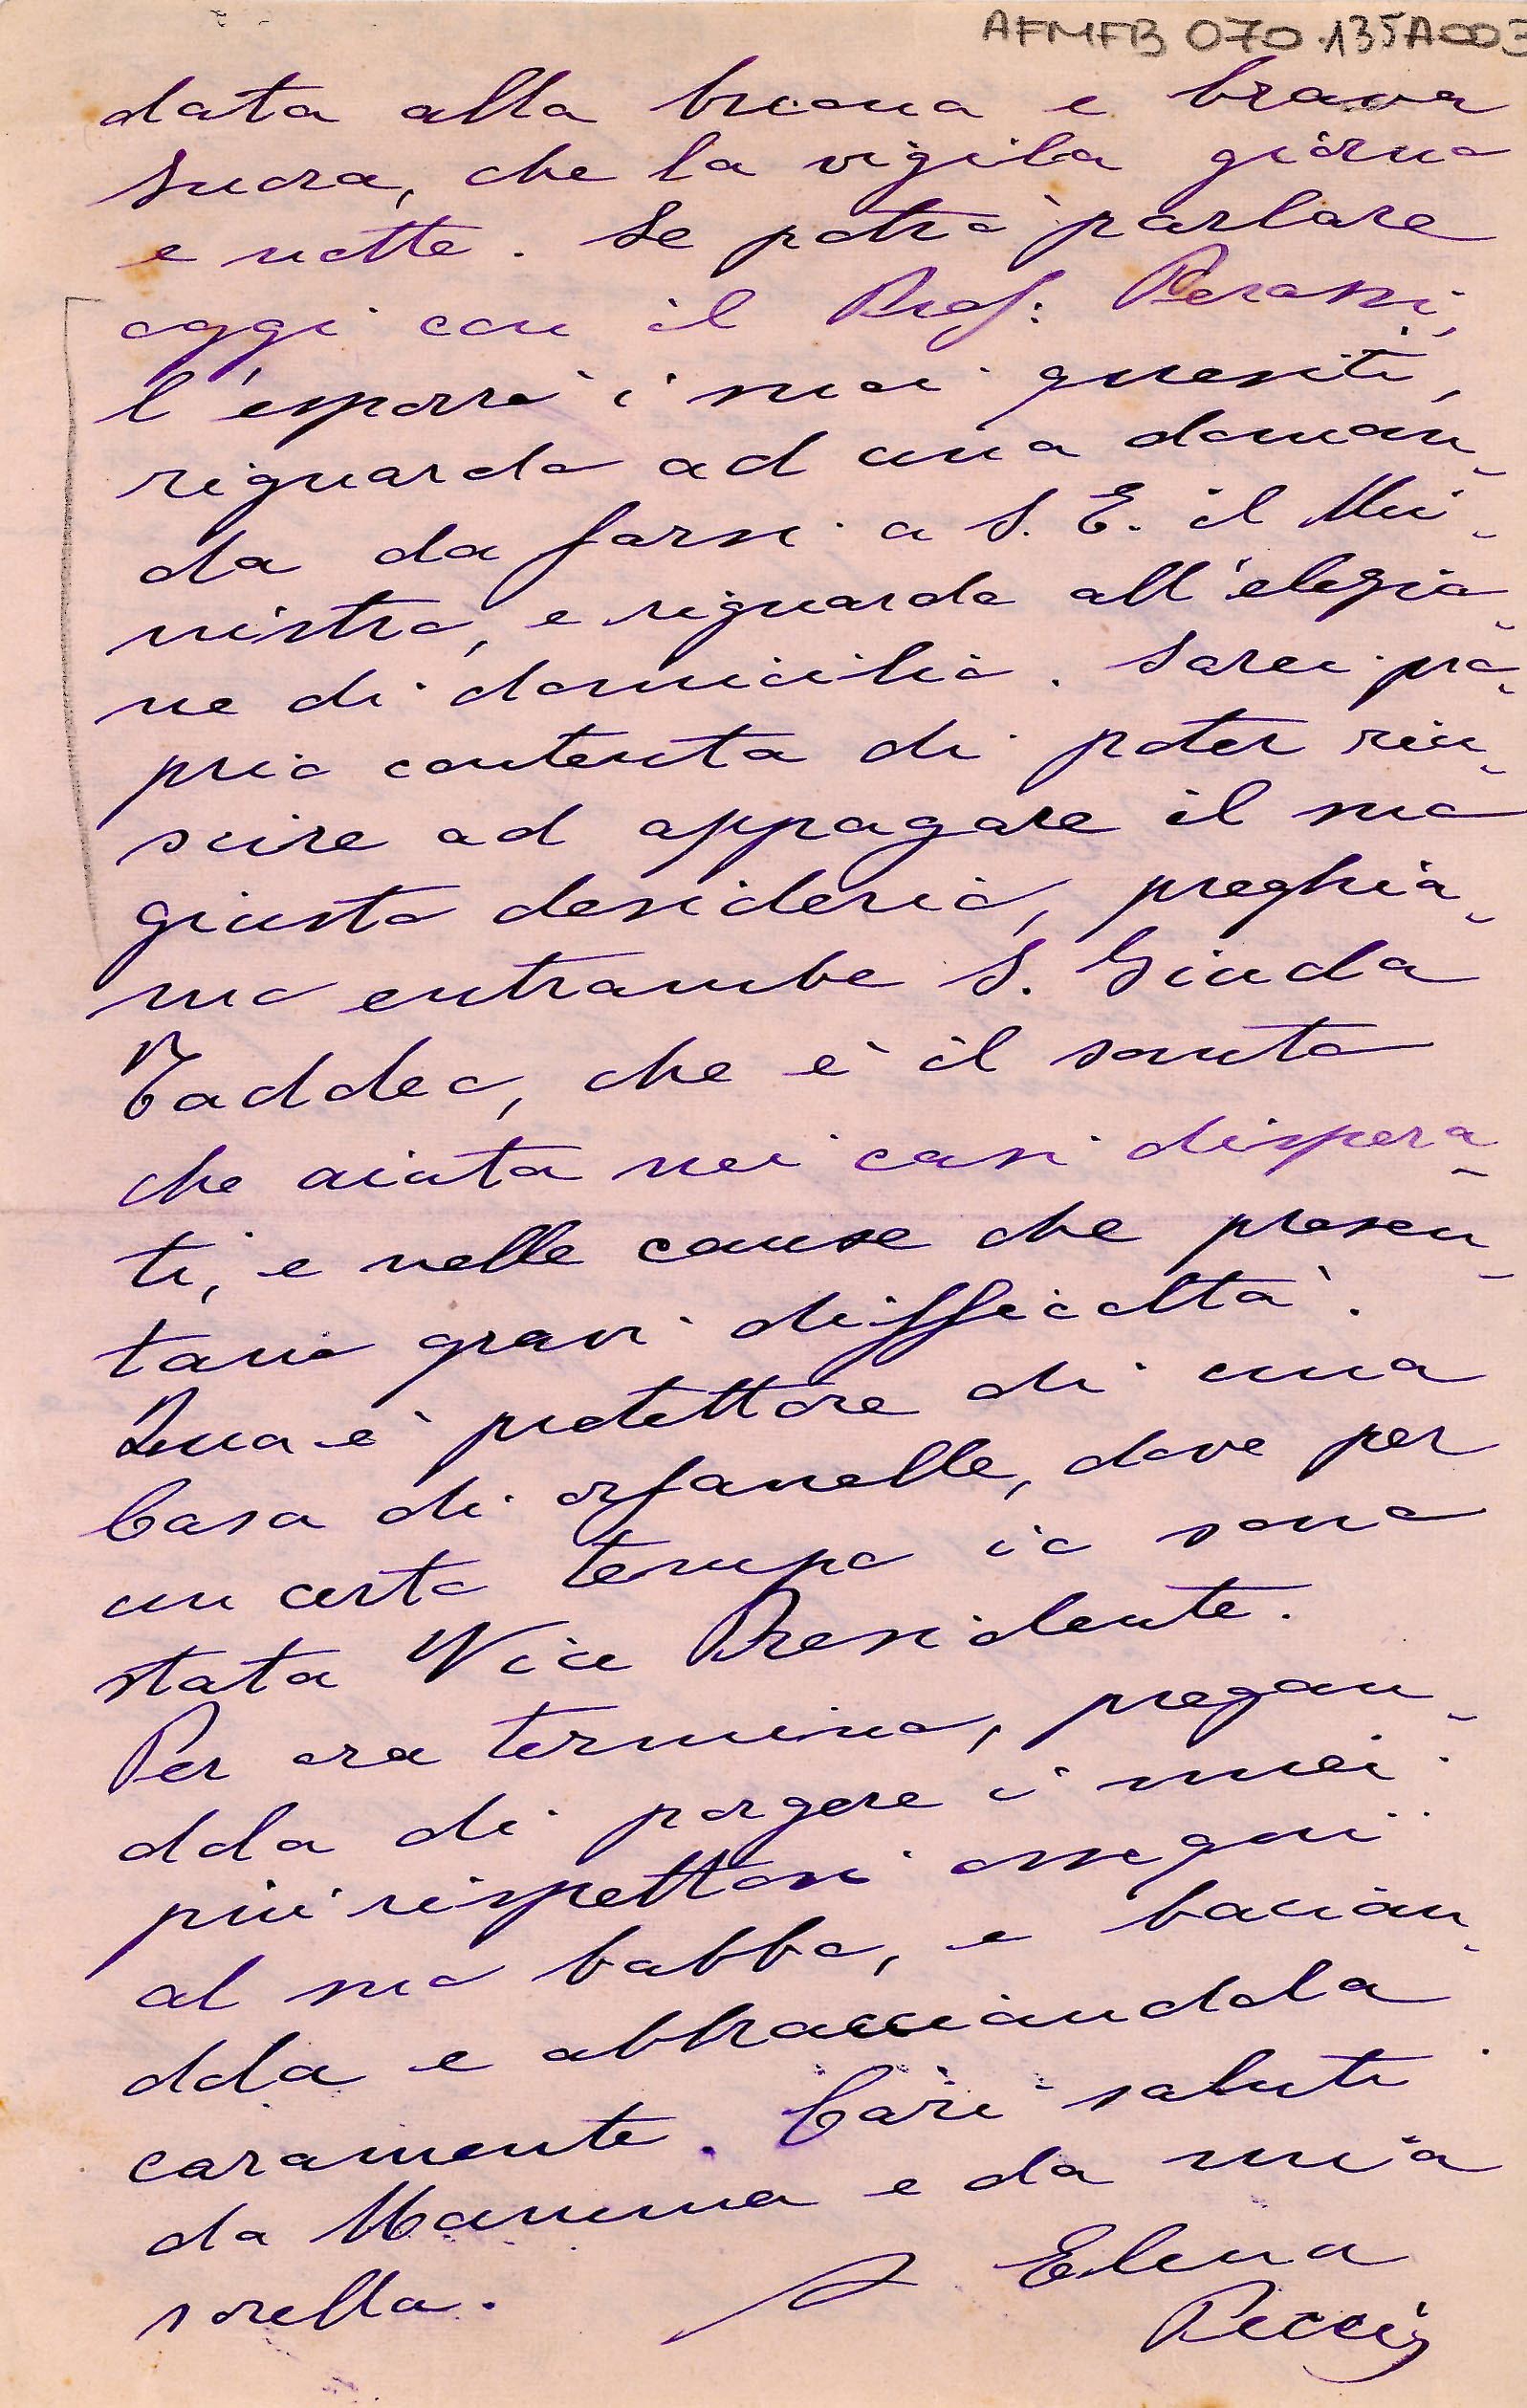 AFMFB 070.135A003
data alla buona e brava
suora, che la vigila giorno
e notte. Se potrò parlare
oggi con il Prof: Perassi,
l'esporrò i suoi quesiti,
riguardo ad una doman-
da da farsi a S. E. il Mi-
nistro, e riguardo all'elezio-
ne di domicilio. Sarei pro-
prio contenta di poter riu-
scire ad appagare il suo
giusto desiderio, preghia-
mo entrambe S. Giuda
Taddeo, che è il santo
che aiuta nei casi dispera-
ti, e nelle cause che presen-
tano gravi difficoltà.
Qua è protettore di una
Casa di orfanelle, dove per
un certo tempo io sono
stata Vice Presidente.
Per ora termino, pregan-
dola di porgere i miei
più rispettosi ossequi
al suo babbo, e bacian-
dola e abbracciandola
caramente. Cari saluti
da Mamma e da mia
sorella.
Elena
Pecci